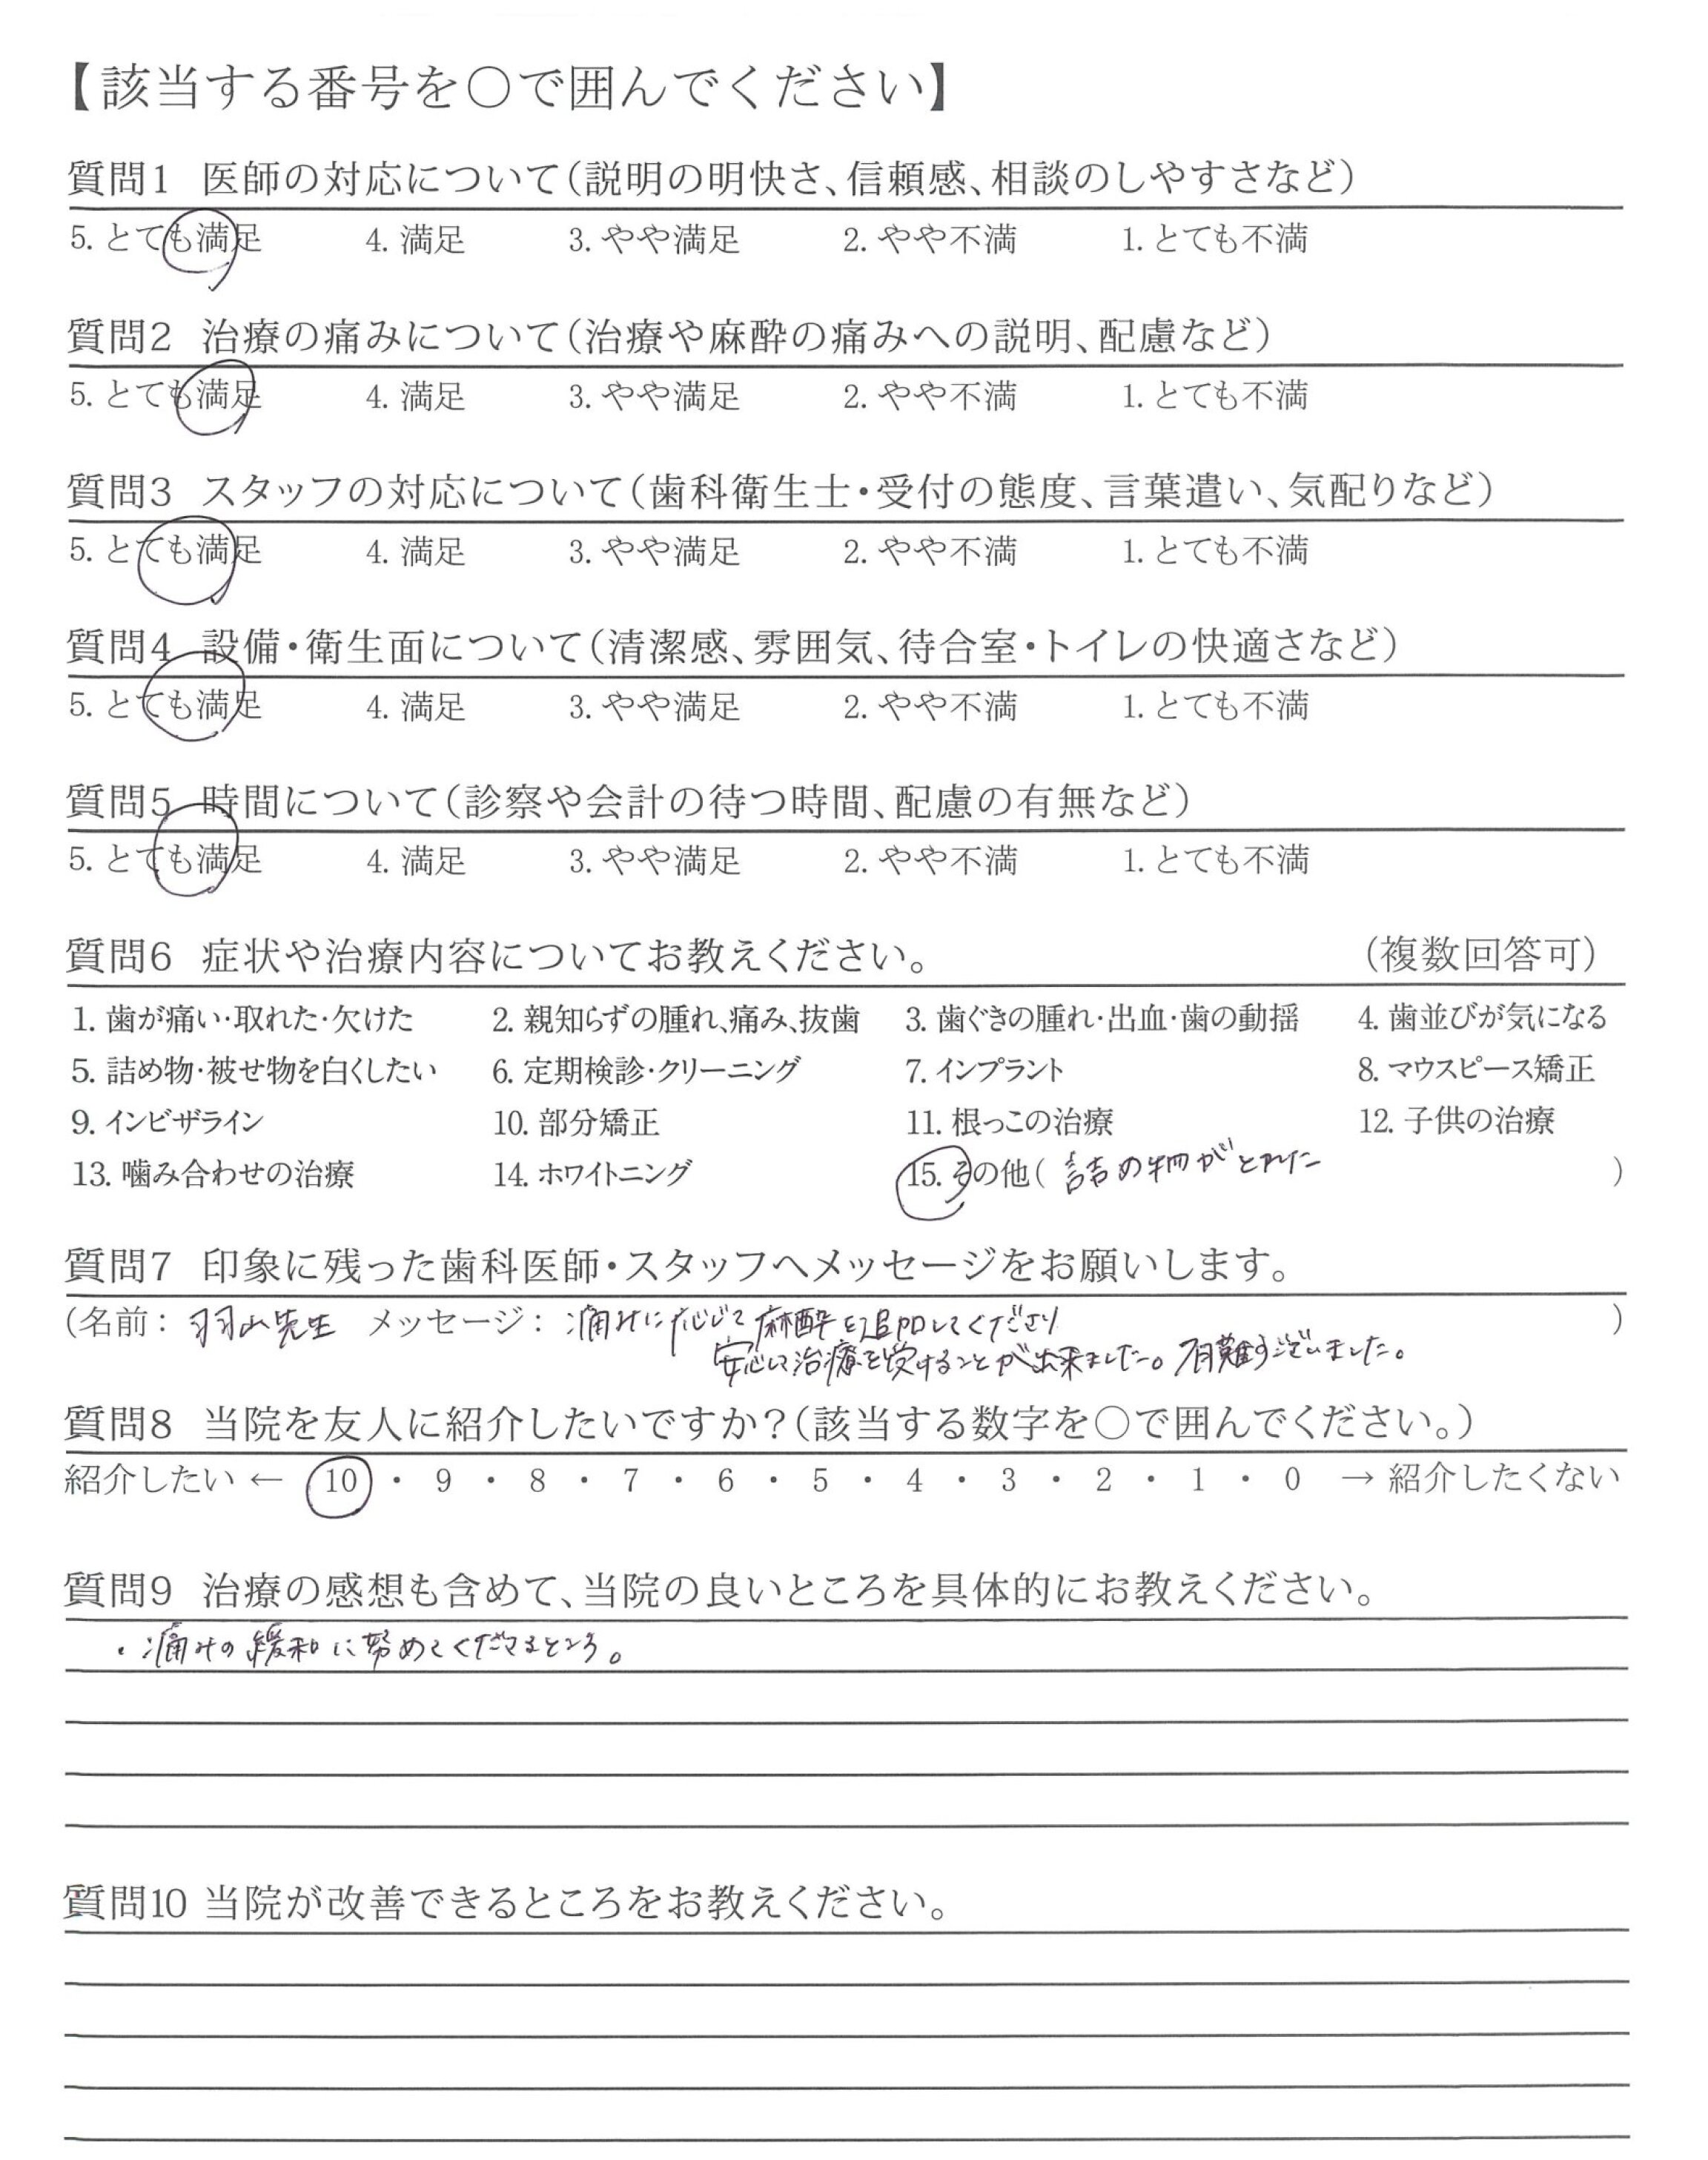 【該当する番号を○で囲んでください】
質問1 医師の対応について(説明の明快さ、信頼感、相談のしやすさなど)
5. とても満足 4. 満足 3. やや満足 2. やや不満 1. とても不満
質問2 治療の痛みについて(治療や麻酔の痛みへの説明、配慮など)
5. とても満足 4. 満足 3. やや満足 2. やや不満 1. とても不満
質問3 スタッフの対応について(歯科衛生士・受付の態度、言葉遣い、気配りなど)
5. とても満足 4. 満足 3. やや満足 2. やや不満 1. とても不満
質問4 設備・衛生面について(清潔感、雰囲気、待合室・トイレの快適さなど)
5. とても満足 4. 満足 3. やや満足 2. やや不満 1. とても不満
質問5 時間について(診察や会計の待つ時間、配慮の有無など)
5. とても満足 4. 満足 3. やや満足 2. やや不満 1. とても不満
質問6 症状や治療内容についてお教えください。 (複数回答可)
1. 歯が痛い・取れた・欠けた 2. 親知らずの腫れ、痛み、抜歯 3. 歯ぐきの腫れ・出血・歯の動揺 4. 歯並びが気になる
5. 詰め物・被せ物を白くしたい 6. 定期検診・クリーニング 7. インプラント 8. マウスピース矯正
9. インビザライン 10. 部分矯正 11. 根っこの治療 12. 子供の治療
13. 噛み合わせの治療 14. ホワイトニング 15. その他( 詰め物がとれた )
質問7 印象に残った歯科医師・スタッフへメッセージをお願いします。
(名前: 羽山先生 メッセージ: 痛みに応じて麻酔を追加してくださり )
安心して治療を受けることが出来ました。有難うございました。
質問8 当院を友人に紹介したいですか?(該当する数字を○で囲んでください。)
紹介したい ← 10 ・ 9 ・ 8 ・ 7 ・ 6 ・ 5 ・ 4 ・ 3 ・ 2 ・ 1 ・ 0 → 紹介したくない
質問9 治療の感想も含めて、当院の良いところを具体的にお教えください。
・痛みの緩和に努めてくださるところ。
質問10 当院が改善できるところをお教えください。